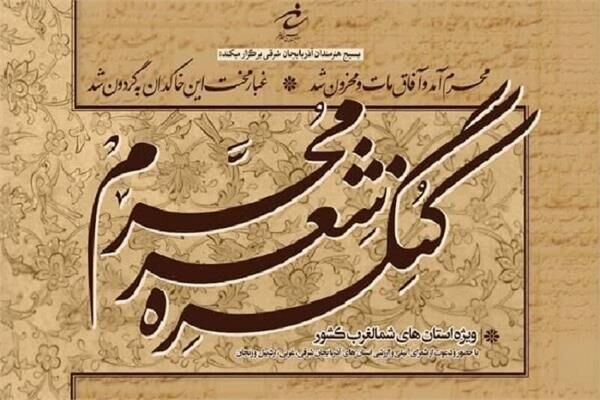 بسیج هنرمندان آذربایجان شرقی برگزار میکند:
محرم آمد و آفاق مات و محزون شد * غبار محنت این خاکدان به گردون شد
کنگره شعر محرم
ویژه استان های شمالغرب کشور
با حضور و دعوت از شعرای آیینی و ارزشی استان های آذربایجان شرقی، غربی، اردبیل و زنجان